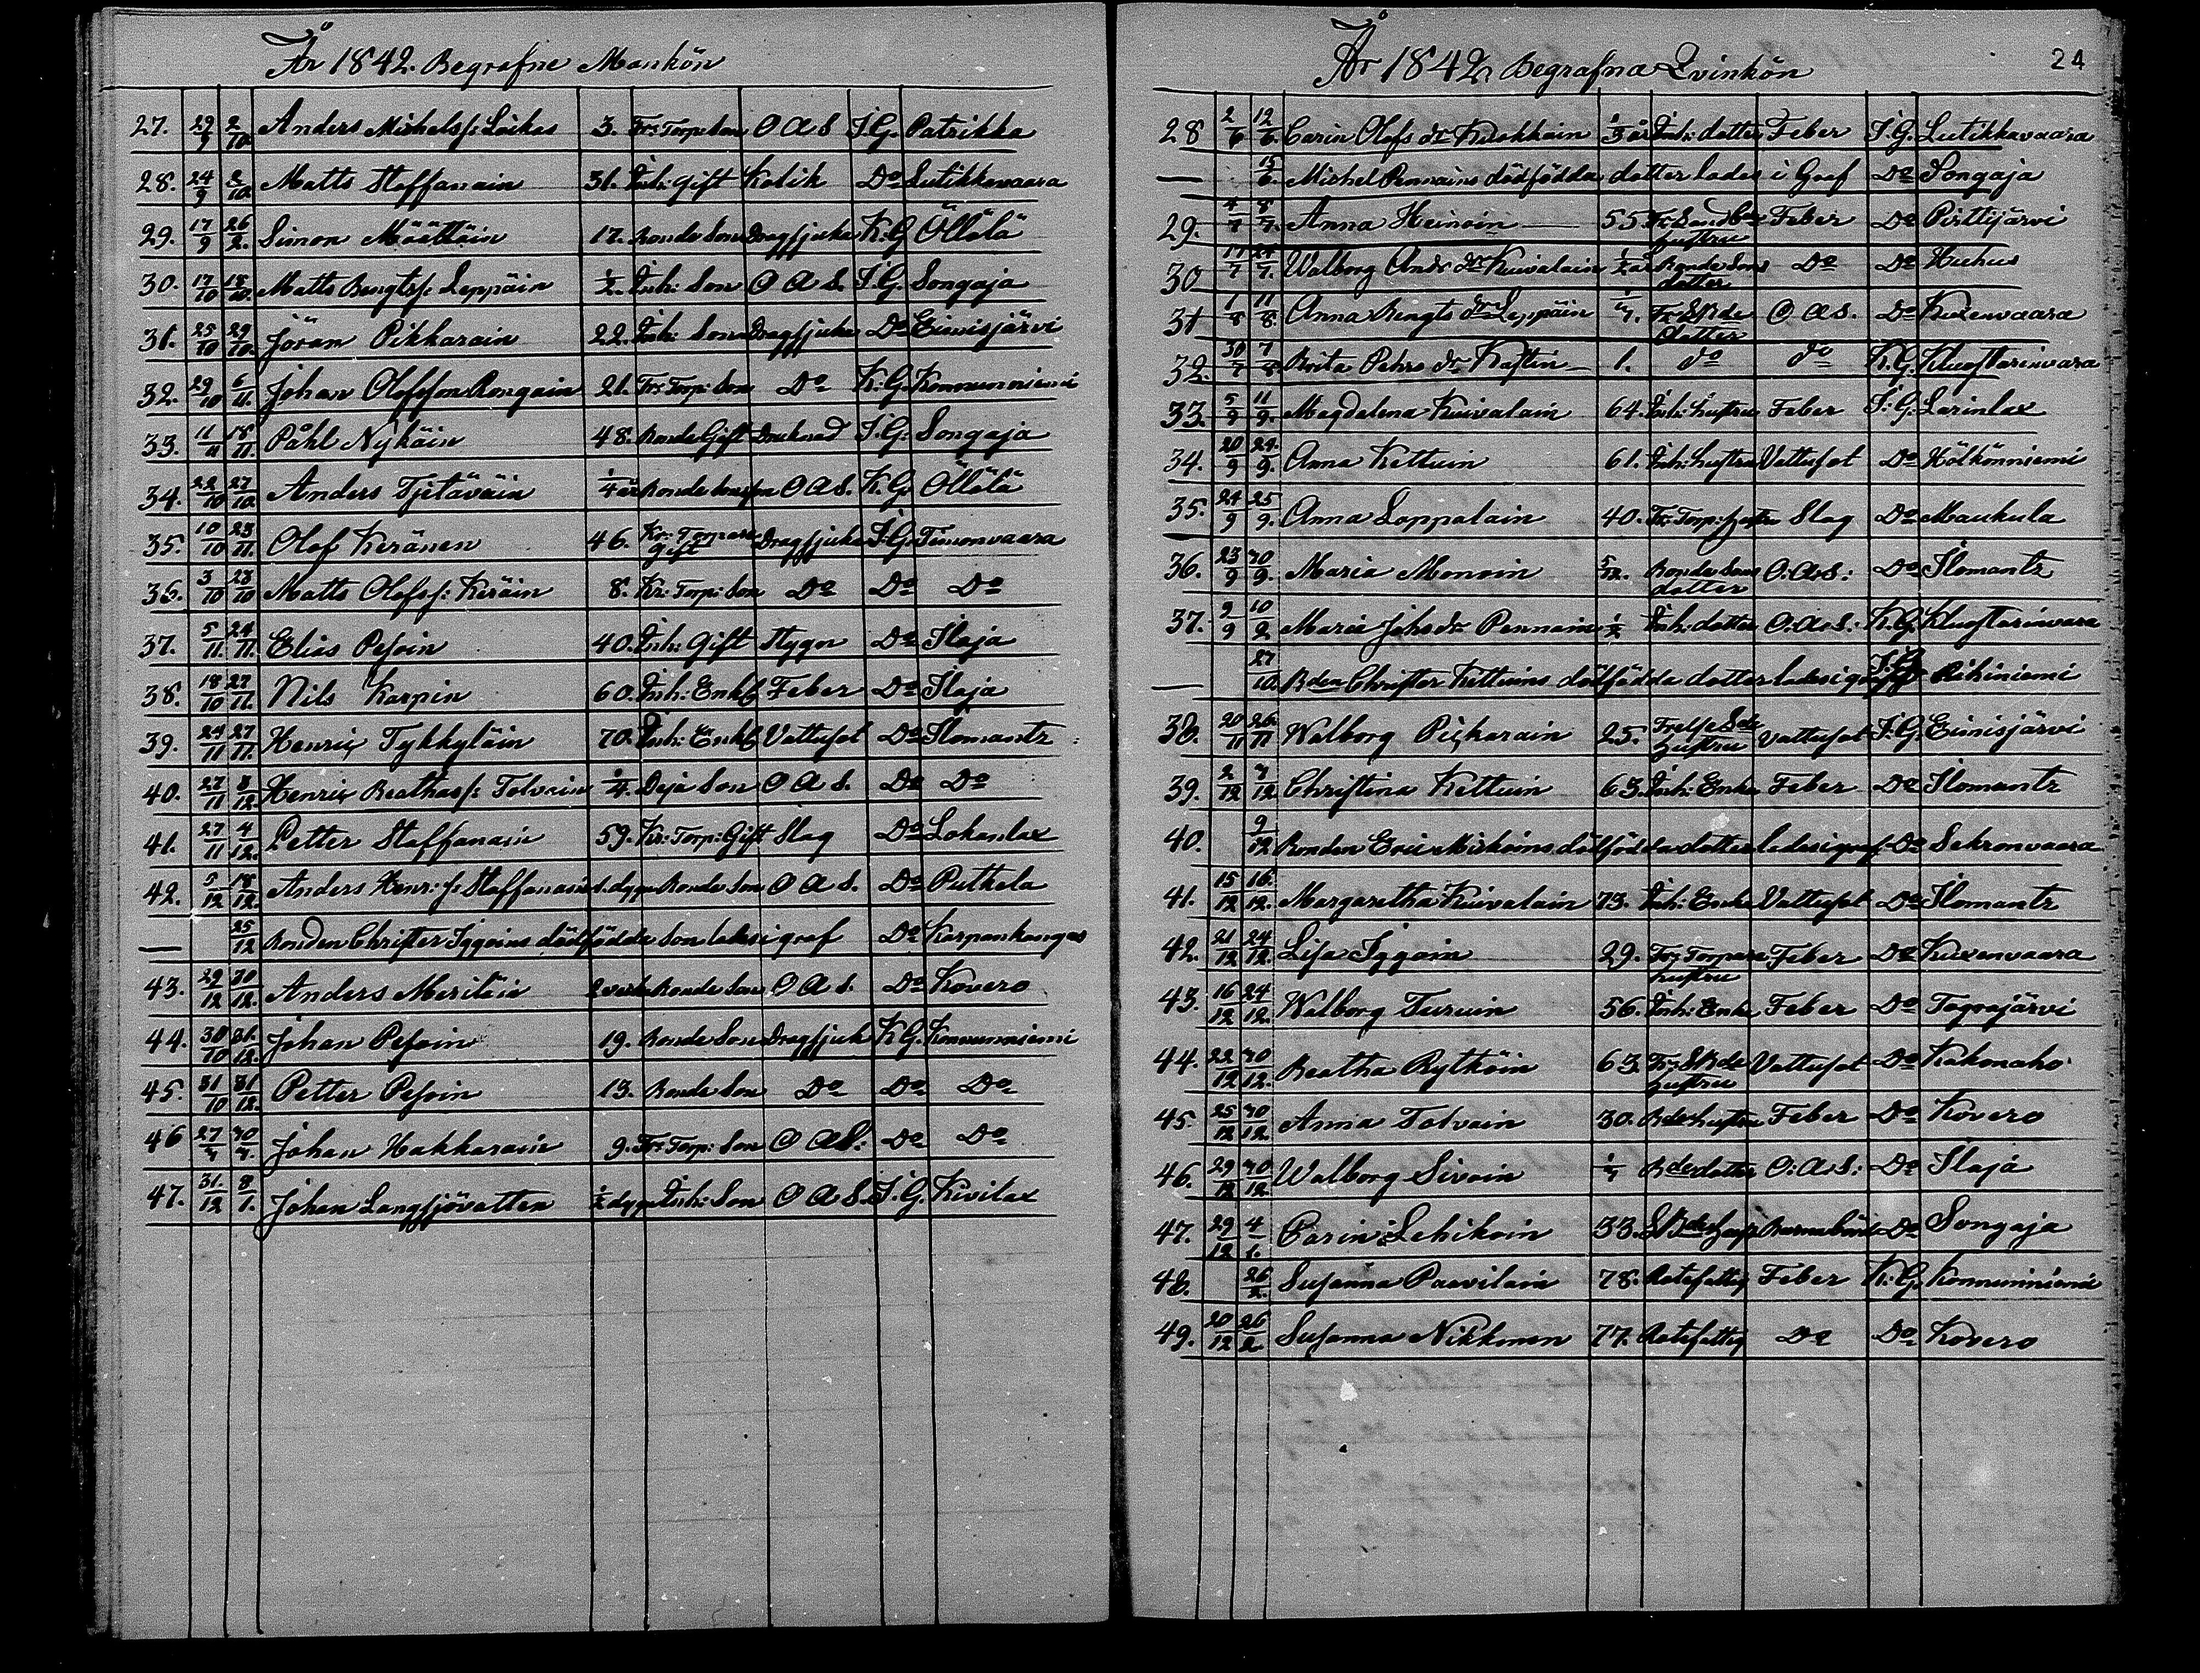 År 1842. Begrafne Mankön
27. 29/9 2/10. Anders Michelsf: Läikas 3. Frs Torp: Son O A S I.G. Patrikka
28. 24/9 2/10. Matts Staffanain 31. Inh: Gift Kolik Do Lutikkavaara
29. 17/9 26/2. Simon Määttäin 17. Bonde Son Dragsjuka K.G Öllölä
30. 17/10 18/10. Matts Bengtsf: Leppäin 1/2. Inh: Son O A S. I.G. Songaja
31. 25/10 29/10. Jöran Pikkarain 22. Inh: Son Dragsjuka Do Eimisjärvi
32. 29/10 6/11. Johan Olofsson Rongain 21. Frs Torp: Son Do K:G. Kommunniemi
33. 11/11 18/11. Påhl Nykäin 48. Bonde Gift Drucknad I.G: Songaja
34. 22/10 27/10. Anders Tjetäväin 1/4 år Bonde Sonson O A S. K.G. Öllölä
35. 10/10 23/11. Olof Keränen 46. Kr: Torpare Gift Dragsjuka I.G. Timonvaara
36. 3/10 23/10 Matts Olofsf: Keräin 8. Kr: Torp: Son Do Do Do
37. 5/11. 24/11. Elias Pesoin 40. Inh: Gift Styggn Do Ilaja
38. 18/10 27/11. Nils Karpin 60. Inh: Enkl Feber Do Ilaja
39. 24/11 27/11. Henric Tykkyläin 70. Inh: Enkl Vattusot Do Ilomantz
40. 27/11 8/12. Henric Beathasf: Tolvain 1/4. Deja Son O A S. Do Do
41. 27/11 4/12. Petter Staffanain 59. Kr: Torp: Gift Slag Do Lokanlax
42. 5/12 18/12. Anders Henr: f: Staffanain dygn Bonde Son O A S. Do Putkela
— 25/12 Bonden Christer Iggoins dödfödde Son lades i graf Do Karpankangas
43. 29/12 30/12. Anders Meriläin 2 veck Bonde Son O A S. Do Kovero
44. 30/10 31/12. Johan Pesoin 19. Bonde Son Dragsjuk K.G. Kommunniemi
45. 31/10 31/12. Petter Pesoin 13. Bonde Son Do Do Do
46 27/7 30/7. Johan Hakkarain 9. Frs Torp: Son O A S: Do Do
47. 31/12 8/1. Johan Langsjövatten 1/2 dygn Inh: Son O A S. I.G. Kivilax
År 1842 Begrafna Qvinkön 24
28 2/6 12/6. Carin Olofs dr 1/3 år Inh: dotter Feber I.G. Lutikkavaara
— 15/6. Michel Pennains dödfödda dotter lades i Graf Do Songaja
29. 4/7 8/7. Anna Heinoin 55. hustru Feber Do Pirttijärvi
30 17/7 24/7. Walborg Ands dr Kuivalain 1/2 år Bonde Sons dotter Do Do Huhus
31 1/8 11/8. Anna Bengts dr Leppäin Frs Bde dotter O A S. Do Kuxenvaara
32. 30/7 7/8 Brita Pehrs dr Kastin 1. do do K.G. Kluosterinvara
33. 5/9 11/9. Magdalena Kuivalain 64. Inh: hustru Feber I:G. Larinlax
34. 20/9 24/9. Anna Kettuin 61. Inh: hustru Vattusot Do Hölkönniemi
35. 24/9 25/9. Anna Loppalain 40. Frs Torp: hustru Slag Do Maukula
36. 23/9 30/9. Maria Monoin 5/12. Bonde Sons dotter O: A: S: Do Ilomantz
37. 9/9 10/2 Maria Johs dr Pennain 1/2 Inh: dotter O: A: S. K.G. Kluosterinvara
— 27/10. Bden Christer Kettuins dödfödda dotter lades i graf I:G Rihiniemi
38. 20/11 26/11 Walborg Pickarain 25. Frelse Bde hustru Vattusot I:G. Eimisjärvi
39. 2/12 7/12 Christina Kettuin 63. Inh: Enka Feber Do Ilomantz
40. 9/12 Bonden Eric Miskoins dödfödda dotter lades i graf Do Sekronvaara
41. 15/12 16/12. Margaretha Kuivalain 73. Inh: Enka Vattusot Do Ilomantz
42. 21/12 24/12. Lisa Iggoin 29. Frs Torpare hustru Feber Do Kuxenvaara
43. 16/12 24/12. Walborg Turuin 56. Inh: Enka Feber Do Tograjärvi
44. 22/12 30/12. Beatha Rytköin 63. Frs Bde hustru Vattusot Do Kakonaho
45. 25/12 30/12. Anna Tolvain 30. Bde hustru Feber Do Kovero
46. 29/12 30/12 Walborg Sivoin Bde dotter O: A: S: Do Ilaja
47. 29/12 4/1. Carin Lehikoin 33. Barnsbörd Do Songaja
48. 26/2. Susanna Paavilain 78. Rotefattig Feber K:G. Kommunniemi
49. 20/12 26/2. Susanna Nikkonen 77. Rotefattig Do Do Kovero